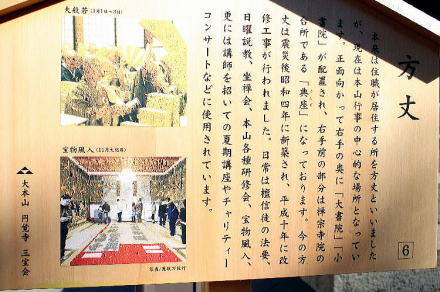 方丈
本来は住職が居住する所を方丈といいました
が、現在は本山行事の中心的な場所となってい
ます。正面向かって右手の奥に「大書院」「小
書院」が配置され、右手前の部分は禅宗寺院の
台所である「典座」になっております。今の方
丈は震災後昭和四年に新築され、平成十年に改
修工事が行われました。日常は檀信徒の法要、
日曜説教、坐禅会、本山各種研修会、宝物風入、
更には講師を招いての夏期講座やチャリティー
コンサートなどに使用されています。
大般若(1月1日〜3日)
宝物風入
写真/
△大本山 円覚寺 三宝会
6